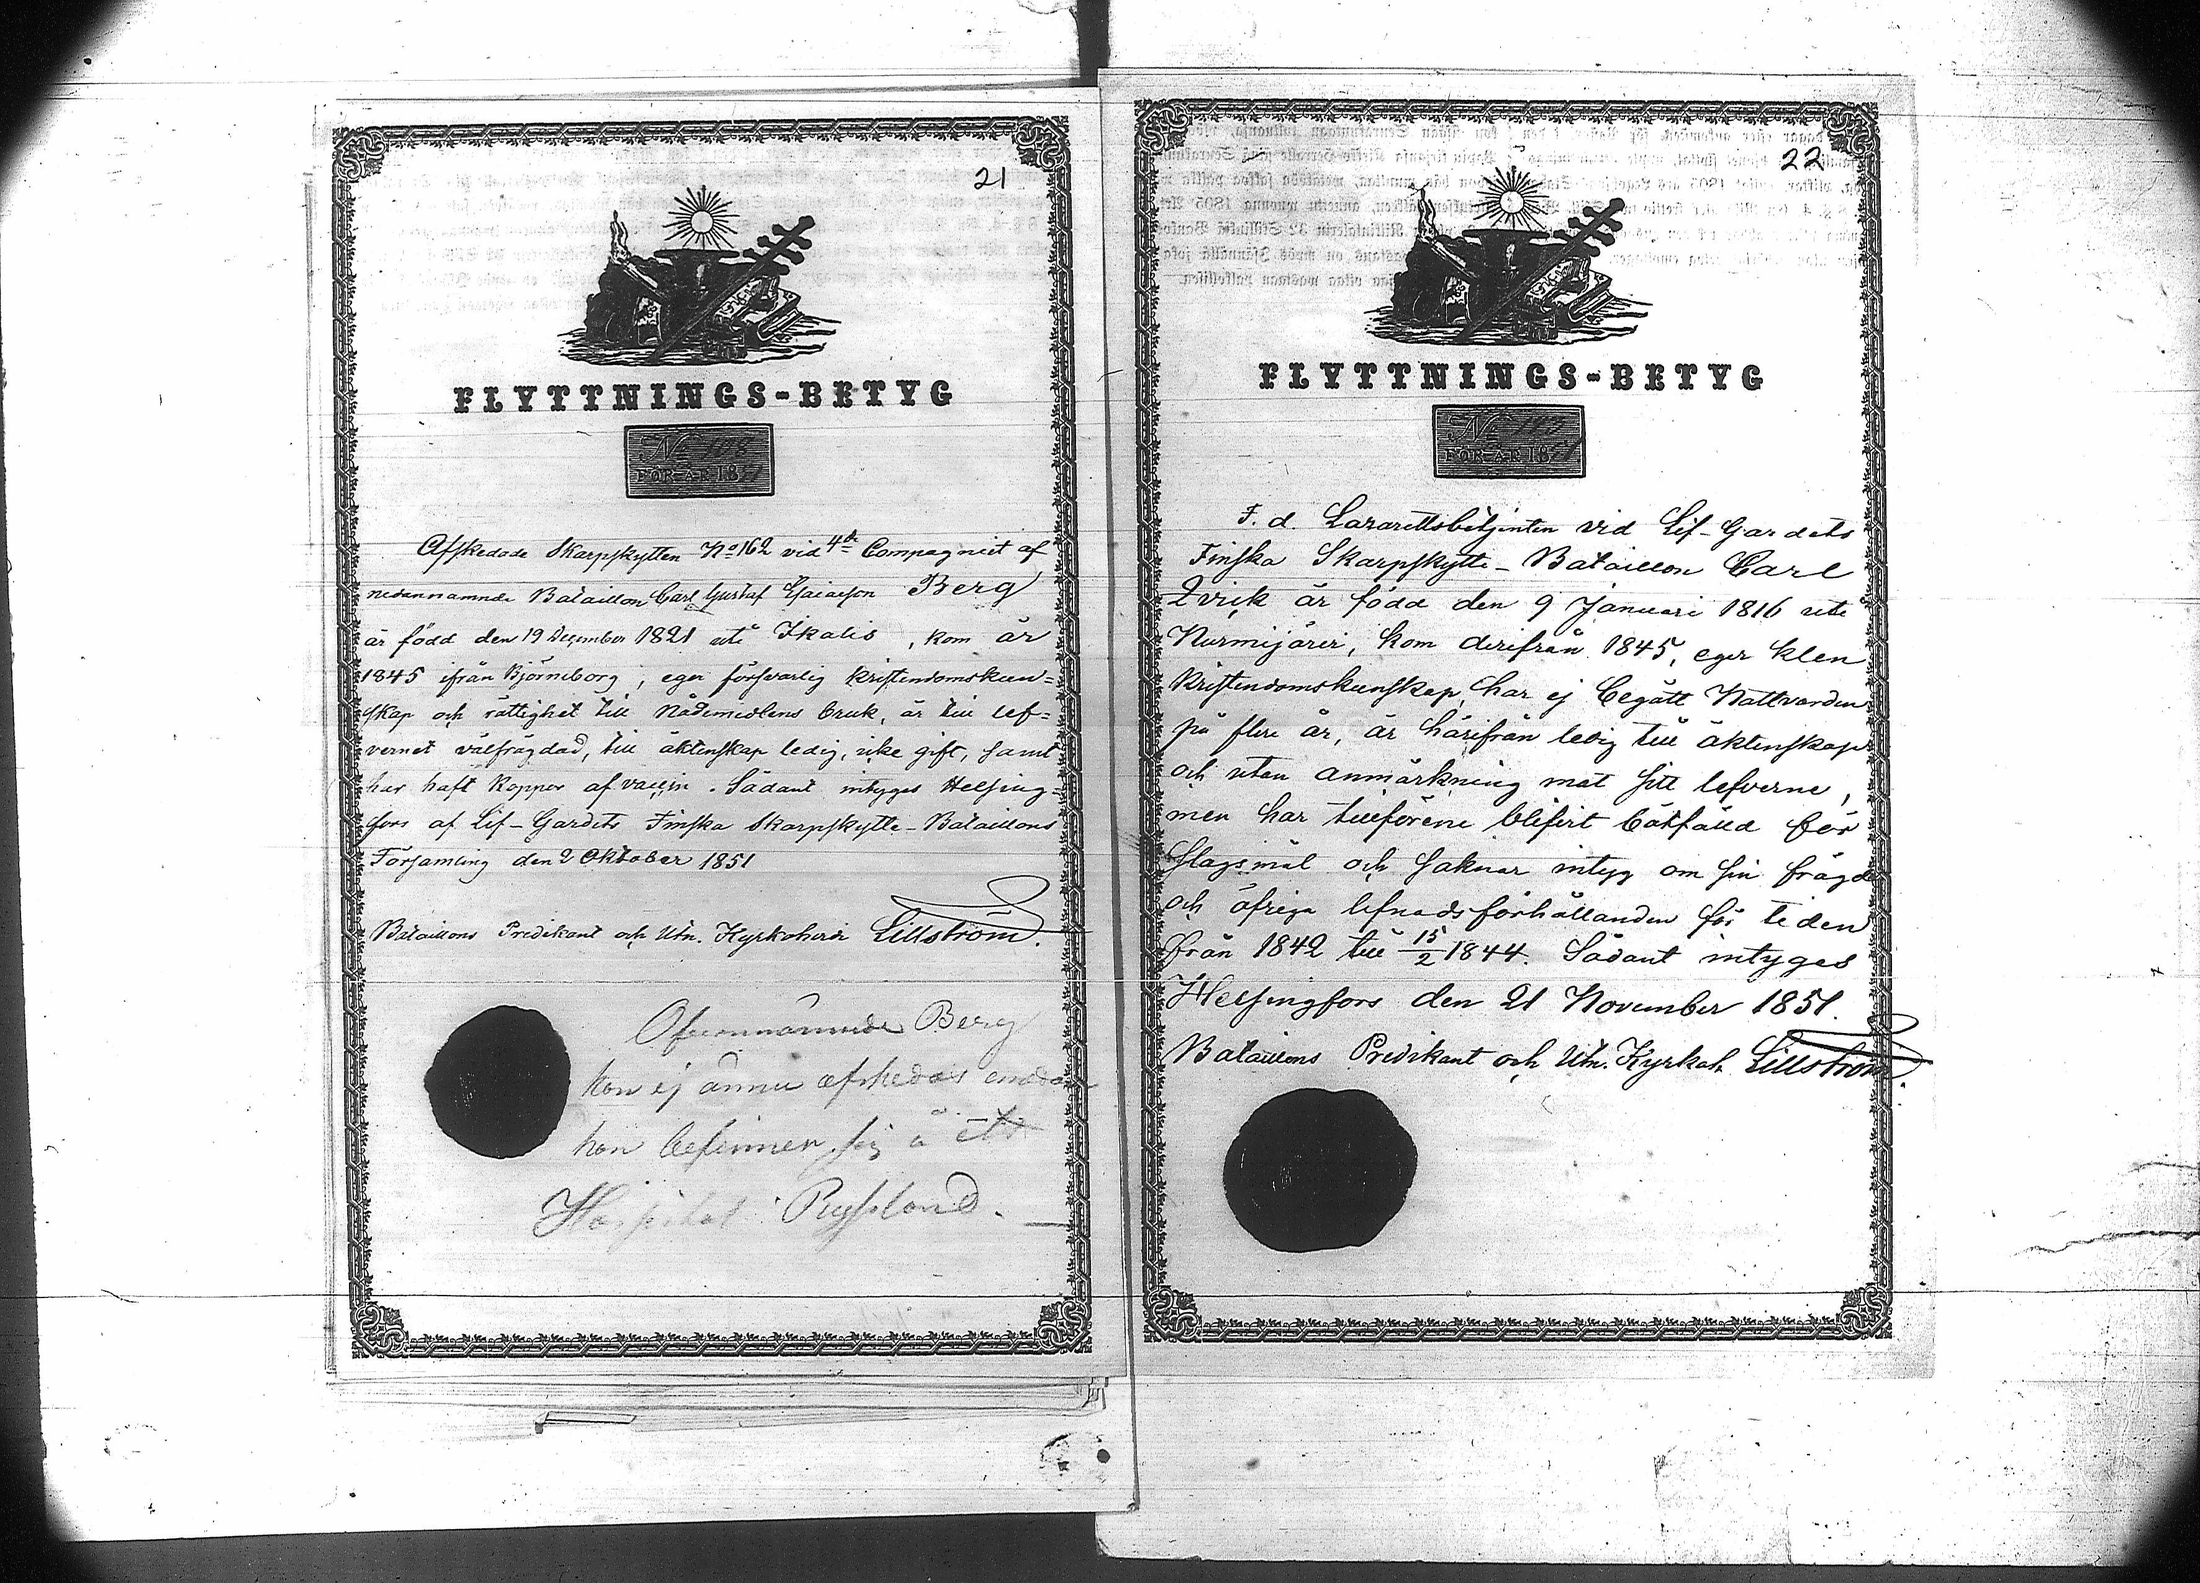 21
FLYTTNINGS-BETYG
No 108
FÖR ÅR 1851
Afskedade Skarpskytten No 162 vid 4de Compagniet af
nedannämnde Bataillon Carl Gustaf Esaiasson Berg
är född den 19 December 1821 uti Ikalis, kom år
1845 ifrån Björneborg, eger försvarlig kristendomskun=
skap och rättighet till Nådemedlens bruk, är till lef=
vernet välfrägdad, till äktenskap ledig, icke gift, samt
har haft koppor af vaccin. Sådant intygas Helsing
fors af Lif-Gardets Finska Skarpskytte-Bataillons
Församling den 2 Oktober 1851
Bataillons Predikant och Utn. Kyrkoherde Lillström.
Ofvannämnde Berg
kan ej ännu afskedas emedan
han befinner sig å ett
Hospital i Ryssland.
22
FLYTTNINGS-BETYG
No
FÖR ÅR 1851
F. d. Lazarettsbetjenten vid Lif-Gardets
Finska Skarpskytte-Bataillon Carl
Qvick är född den 9 Januari 1816 uti
Nurmijärvi, kom derifrån 1845, eger klen
kristendomskunskap, har ej begått Nattvarden
på flere år, är härifrån ledig till äktenskap
och utan anmärkning mot sitt lefverne,
men har tillförene blifvit bötfälld för
slagsmål och saknar intyg om sin frägd
och öfriga lefnadsförhållanden för tiden
från 1842 till 15/2 1844. Sådant intygas
Helsingfors den 21 November 1851.
Bataillons Predikant och Utn. Kyrkoh. Lillström.